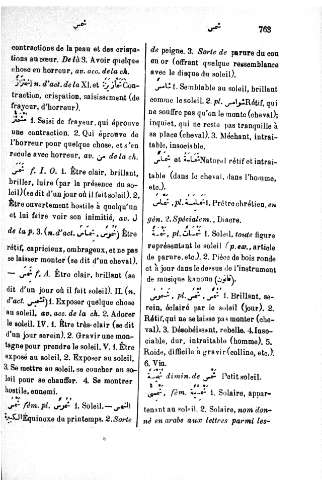 شمس
شمس
763
contractions de la peau et des crispa-
tions au cœur. De là 3. Avoir quelque
chose en horreur, av. acc. de la ch.
n. d'act. de la XI. et Con-
traction, crispation, saisissement (de
frayeur, d'horreur).
1. Saisi de frayeur, qui éprouve
une contraction. 2. Qui éprouve de
l'horreur pour quelque chose, et s'en
recule avec horreur, av. من de la ch.
شمس f. I. O. 1. Être clair, brillant,
briller, luire (par la présence du so-
leil) (se dit d'un jour où il fait soleil). 2.
Être ouvertement hostile à quelqu'un
et lui faire voir son inimitié, av. ل
de la p. 3. (n. d'act. شموس, شماس) Être
rétif, capricieux, ombrageux, et ne pas
se laisser monter (se dit d'un cheval).
— شمس f. A. Être clair, brillant (se
dit d'un jour où il fait soleil). II. (n.
d'act. تشميس) 1. Exposer quelque chose
au soleil, av. acc. de la ch. 2. Adorer
le soleil. IV. 1. Être très-clair (se dit
d'un jour serein). 2. Gravir une mon-
tagne pour prendre le soleil. V. 1. Être
exposé au soleil. 2. Exposer au soleil.
3. Se mettre au soleil, se coucher au so-
leil pour se chauffer. 4. Se montrer
hostile, ennemi.
شمس fém. pl. شموس 1. Soleil. —
Équinoxe du printemps. 2. Sorte
de peigne. 3. Sorte de parure du cou
en or (offrant quelque ressemblance
avec le disque du soleil).
1. Semblable au soleil, brillant
comme le soleil. 2. pl. شوامس Rétif, qui
ne souffre pas qu'on le monte (cheval);
inquiet, qui ne reste pas tranquille à
sa place (cheval). 3. Méchant, intrai-
table, insociable.
شماس et شماسة Naturel rétif et intrai-
table (dans le cheval, dans l'homme,
etc.).
شماس, pl. شمامسة 1. Prêtre chrétien, en
gén. 2. Spécialem., Diacre.
شمسة, pl. 1. Soleil, toute figure
représentant le soleil (p. ex., article
de parure, etc.). 2. Pièce de bois ronde
et à jour dans le dessus de l'instrument
de musique kanoun (قانون).
شموس, pl. شمس 1. Brillant, se-
rein, éclairé par le soleil (jour). 2.
Rétif, qui ne se laisse pas monter (che-
val). 3. Désobéissant, rebelle. 4. Inso-
ciable, dur, intraitable (homme). 5.
Roide, difficile à gravir (colline, etc.).
6. Vin.
شميسة dimin. de شمس Petit soleil.
شمسي, fém. شمسية 1. Solaire, appar-
tenant au soleil. 2. Solaire, nom don-
né en arabe aux lettres parmi les-